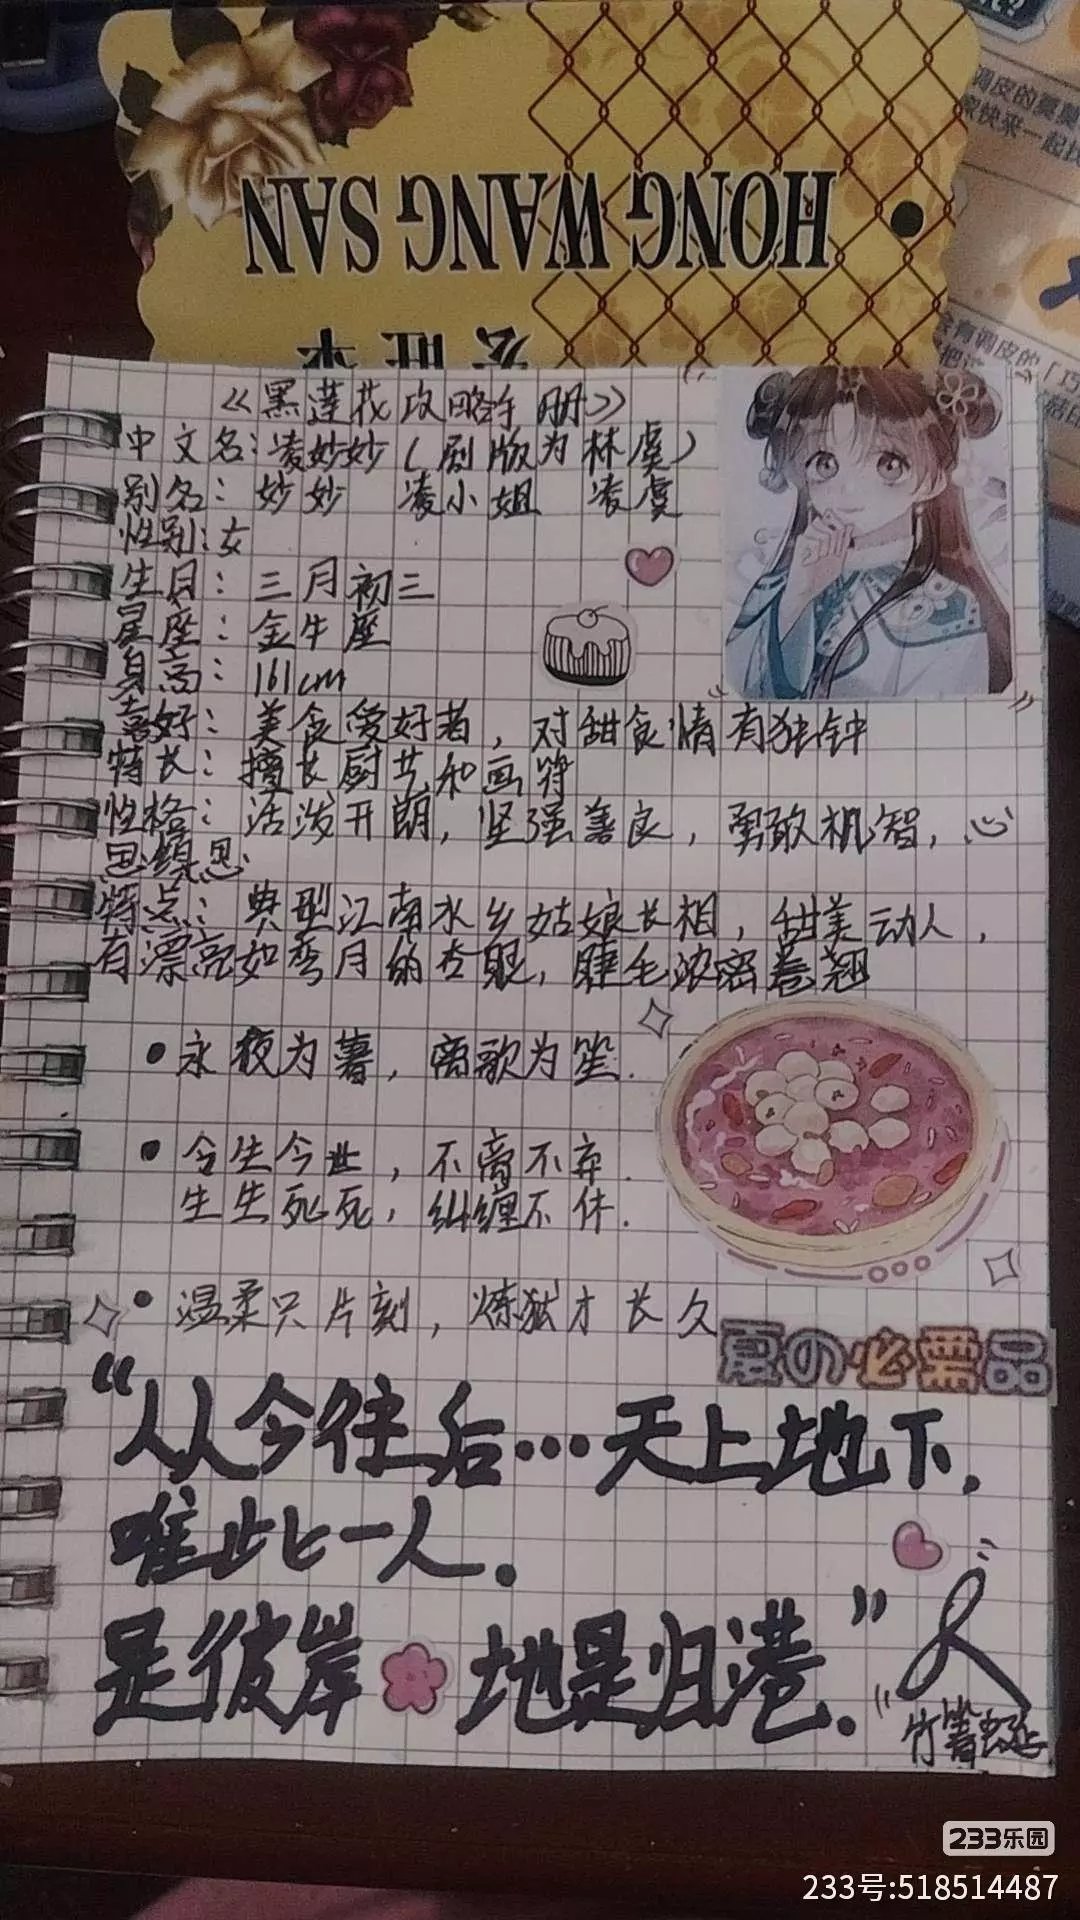 HONG WANG SAN
《黑莲花攻略手册》
中文名：凌妙妙（剧版为林虞）
别名：妙妙 凌小姐 凌虞
性别：女
生日：三月初三
星座：金牛座
身高：161cm
喜好：美食爱好者，对甜食情有独钟
特长：擅长厨艺和画符
性格：活泼开朗，坚强善良，勇敢机智，心
思缜思
特点：典型江南水乡姑娘长相，甜美动人，
有漂亮如弯月的杏眼，睫毛浓密卷翘
•永夜为薯，离歌为笙.
•今生今世，不离不弃.
生生死死，纠缠不休.
•温柔只片刻，炼狱才长久
夏の必需品
“从今往后…天上地下，
唯此一人.
是彼岸 地是归港.”
233乐园
233号:518514487